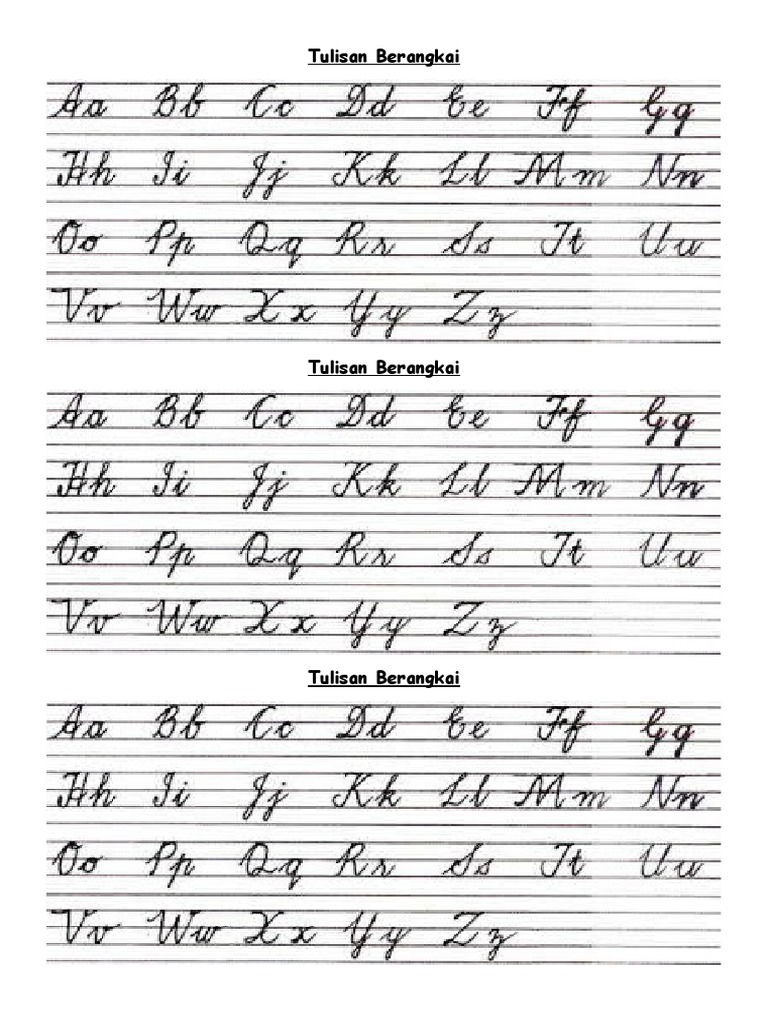 Tulisan Berangkai
Aa Bb Cc Dd Ee Ff Gg
Hh Ii Jj Kk Ll Mm Nn
Oo Pp Qq Rr Ss Tt Uu
Vv Ww Xx Yy Zz
Tulisan Berangkai
Aa Bb Cc Dd Ee Ff Gg
Hh Ii Jj Kk Ll Mm Nn
Oo Pp Qq Rr Ss Tt Uu
Vv Ww Xx Yy Zz
Tulisan Berangkai
Aa Bb Cc Dd Ee Ff Gg
Hh Ii Jj Kk Ll Mm Nn
Oo Pp Qq Rr Ss Tt Uu
Vv Ww Xx Yy Zz